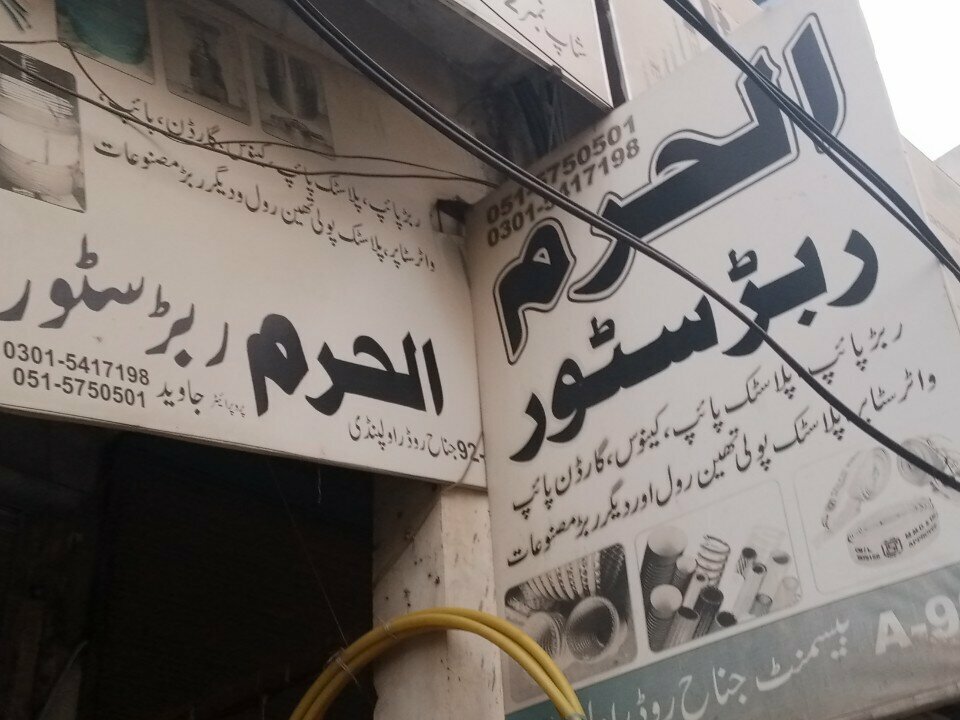 شاپ نمبر
ربڑ پائپ، پلاسٹک پائپ، کینوس، گارڈن، پائپ،
واٹر سٹاپر، پلاسٹک پولی تھین رول و دیگر ربڑ مصنوعات
الحرم ربڑ سٹور
0301-5417198
051-5750501
پروپرائیٹر جاوید
92-جناح روڈ راولپنڈی
051-5750501
0301-5417198
الحرم
ربڑ سٹور
ربڑ پائپ، پلاسٹک پائپ، کینوس، گارڈن پائپ
واٹر سٹاپر، پلاسٹک پولی تھین رول اور دیگر ربڑ مصنوعات
بیسمنٹ جناح روڈ